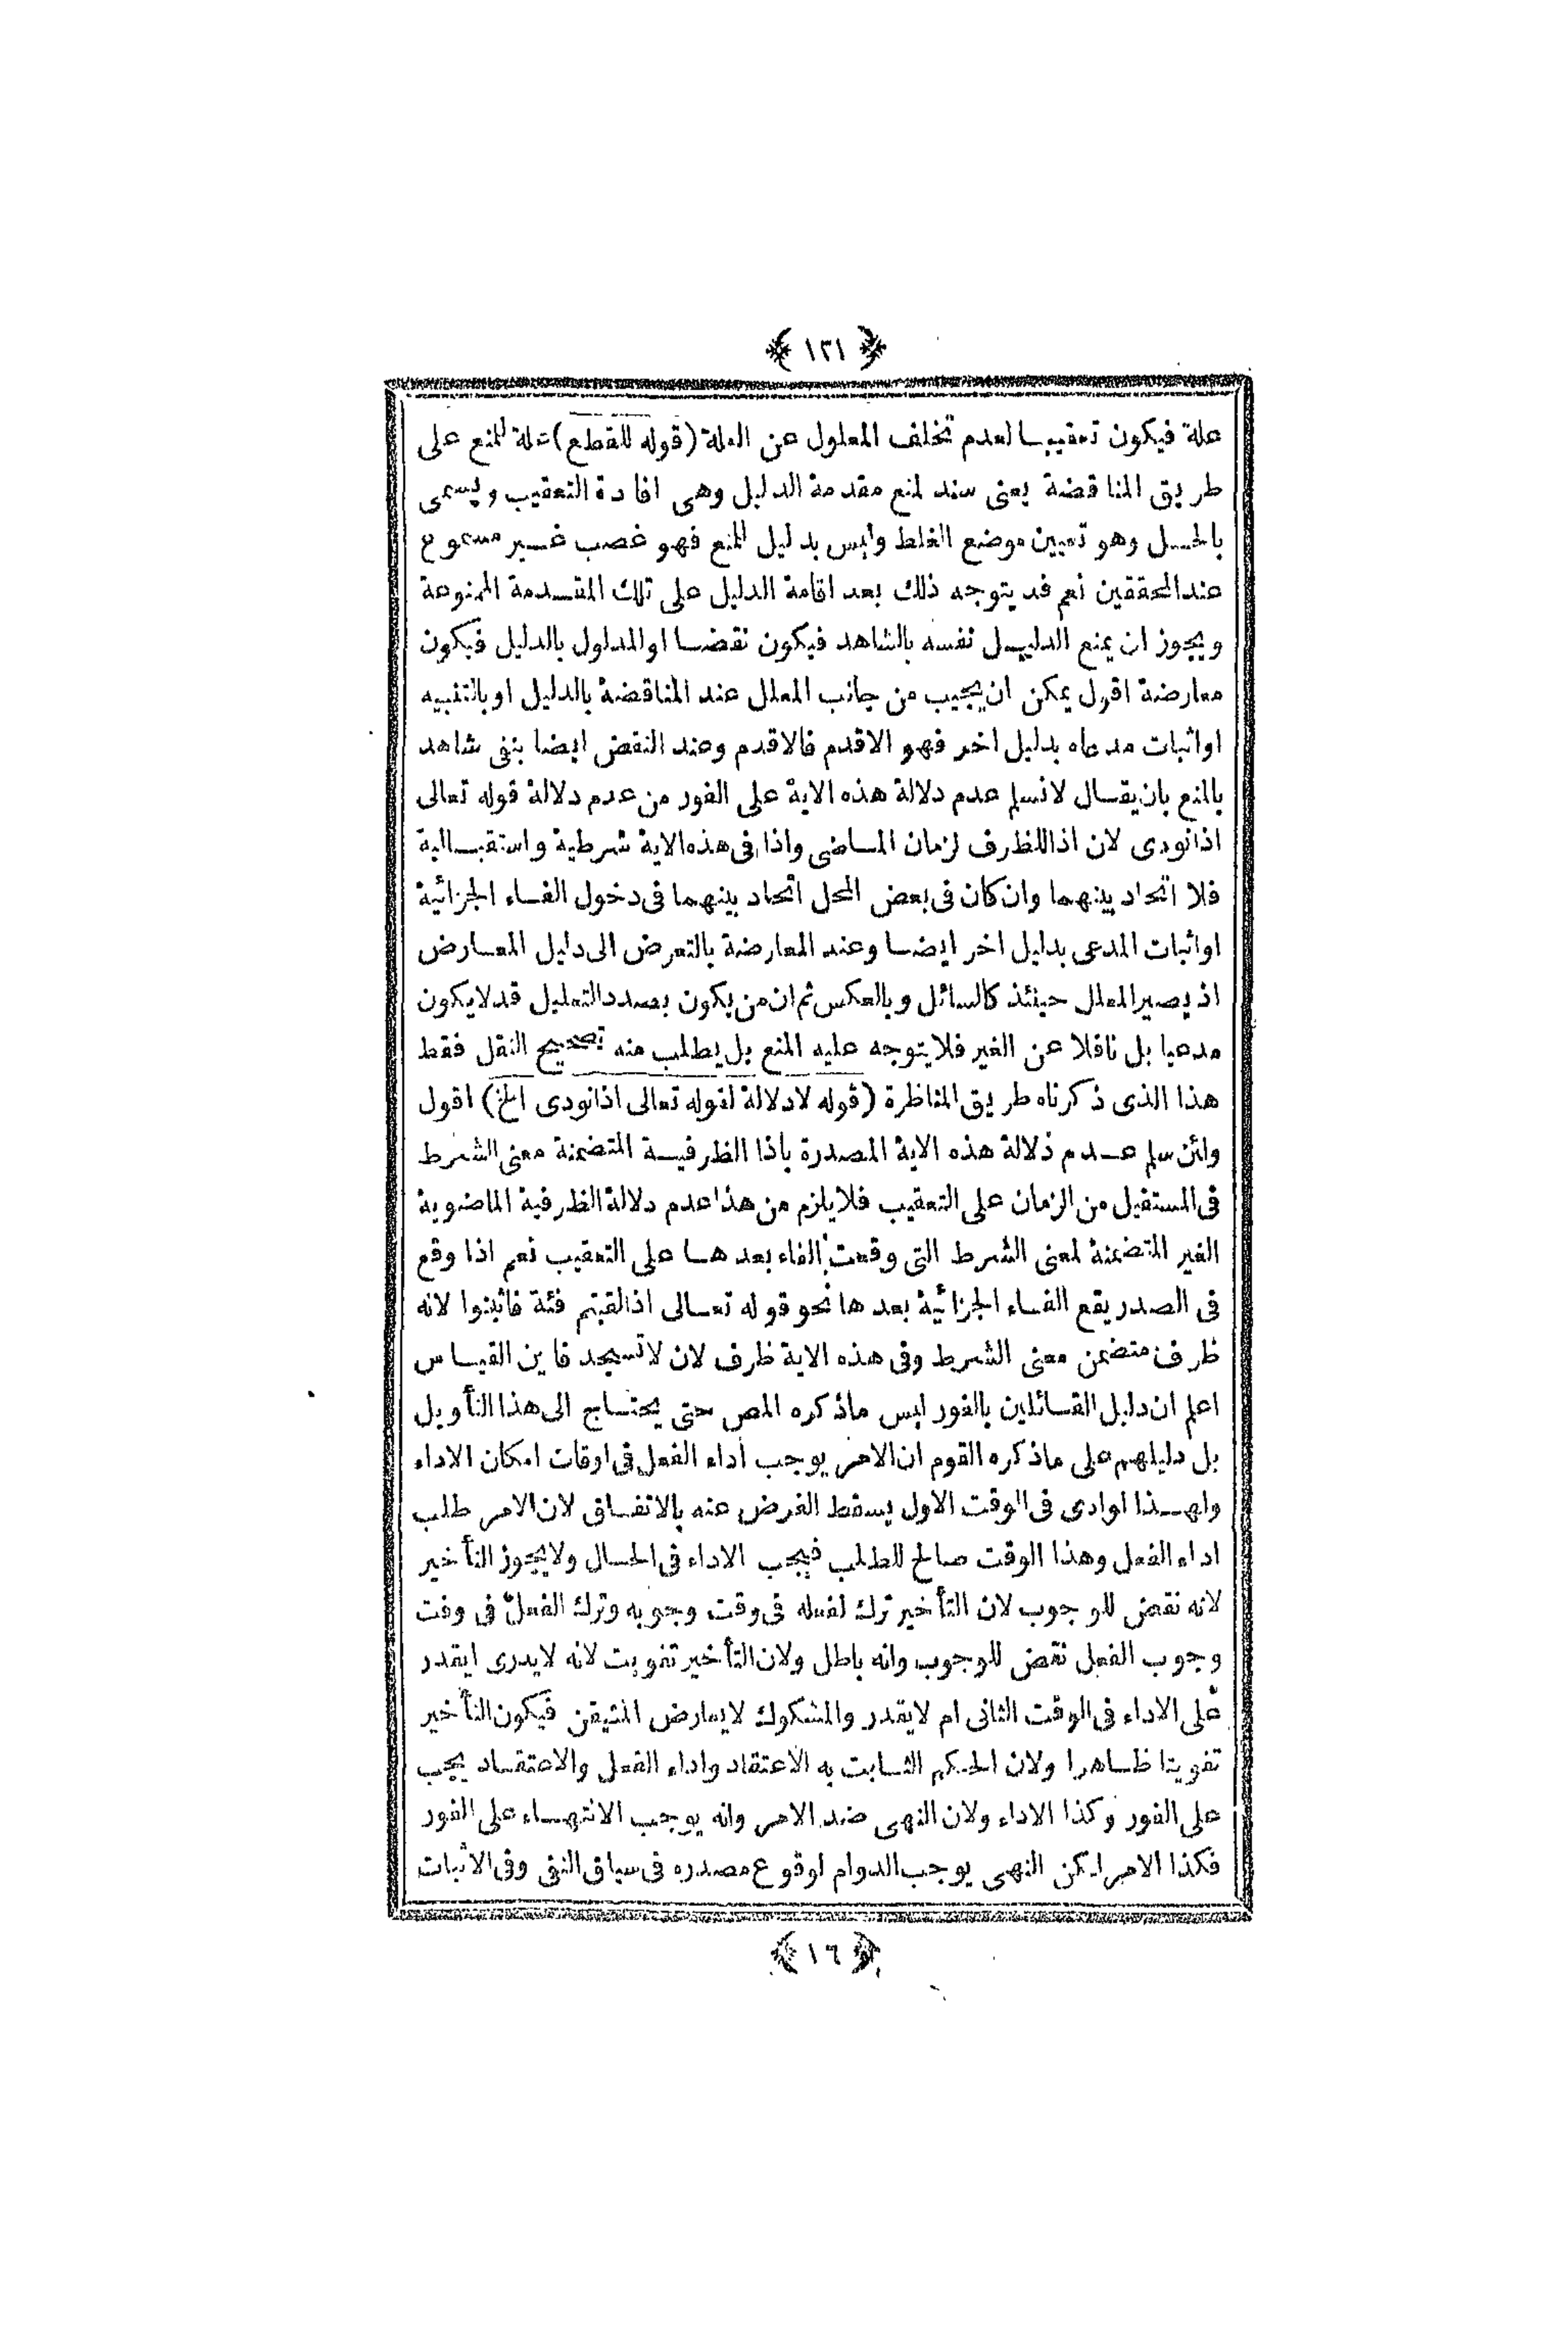 ﴿ ١٢١ ﴾
علة فيكون تعقيبا لعدم تخلف المعلول عن العلة (قوله للقطع) علة للمنع على
طريق المناقضة يعنى سند لمنع مقدمة الدليل وهى افادة التعقيب ويسمى
بالحل وهو تعيين موضع الغلط وليس بدليل المنع فهو غصب غير مسموع
عند المحققين نعم قد يتوجه ذلك بعد اقامة الدليل على تلك المقدمة الممنوعة
ويجوز ان يمنع الدليل نفسه بالشاهد فيكون نقضا او المدلول بالدليل فيكون
معارضة اقول يمكن ان يجيب من جانب المعلل عند المناقضة بالدليل او بالتنبيه
او اثبات مدعاه بدليل اخر فهو الاقدم فالاقدم وعند النقض ايضا بنفى شاهد
بالمنع بان يقال لانسلم عدم دلالة هذه الاية على الفور من عدم دلالة قوله تعالى
اذا نودى لان اذ اللظرف لزمان الماضى واذا فى هذه الاية شرطية واستقبالية
فلا اتحاد بينهما وان كان فى بعض المحل اتحاد بينهما فى دخول الفاء الجزائية
او اثبات المدعى بدليل اخر ايضا وعند المعارضة بالتعرض الى دليل المعارض
اذ يصير المعلل حينئذ كالسائل وبالعكس ثم ان من يكون بصدد التعليل قد لايكون
مدعيا بل ناقلا عن الغير فلا يتوجه عليه المنع بل يطلب منه تصحيح النقل فقط
هذا الذى ذكرناه طريق المناظرة (قوله لادلالة لقوله تعالى اذا نودى الخ) اقول
ولئن سلم عدم دلالة هذه الاية المصدرة باذا الظرفية المتضمنة معنى الشرط
فى المستقبل من الزمان على التعقيب فلا يلزم من هذا عدم دلالة الظرفية الماضوية
الغير المتضمنة لمعنى الشرط التى وقعت الفاء بعدها على التعقيب نعم اذا وقع
فى الصدر يقع الفاء الجزائية بعدها نحو قوله تعالى اذا لقيتم فئة فاثبتوا لانه
ظرف متضمن معنى الشرط وفى هذه الاية ظرف لان لاتسجد فاين القياس
اعلم ان دليل القائلين بالفور ليس ماذكره المص حتى يحتاج الى هذا التأويل
بل دليلهم على ماذكره القوم ان الامر يوجب اداء الفعل فى اوقات امكان الاداء
ولهذا لو ادى فى الوقت الاول يسقط الفرض عنه بالاتفاق لان الامر طلب
اداء الفعل وهذا الوقت صالح للطلب فيجب الاداء فى الحال ولايجوز التأخير
لانه نقض للوجوب لان التأخير ترك لفعله فى وقت وجوبه وترك الفعل فى وقت
وجوب الفعل نقض للوجوب وانه باطل ولان التأخير تفويت لانه لايدرى ايقدر
على الاداء فى الوقت الثانى ام لايقدر والمشكوك لايعارض المتيقن فيكون التأخير
تفويتا ظاهرا ولان الحكم الثابت به الاعتقاد واداء الفعل والاعتقاد يجب
على الفور وكذا الاداء ولان النهى ضد الامر وانه يوجب الانتهاء على الفور
فكذا الامر لكن النهى يوجب الدوام لوقوع مصدره فى سياق النفى وفى الاثبات
﴿ ١٦ ﴾